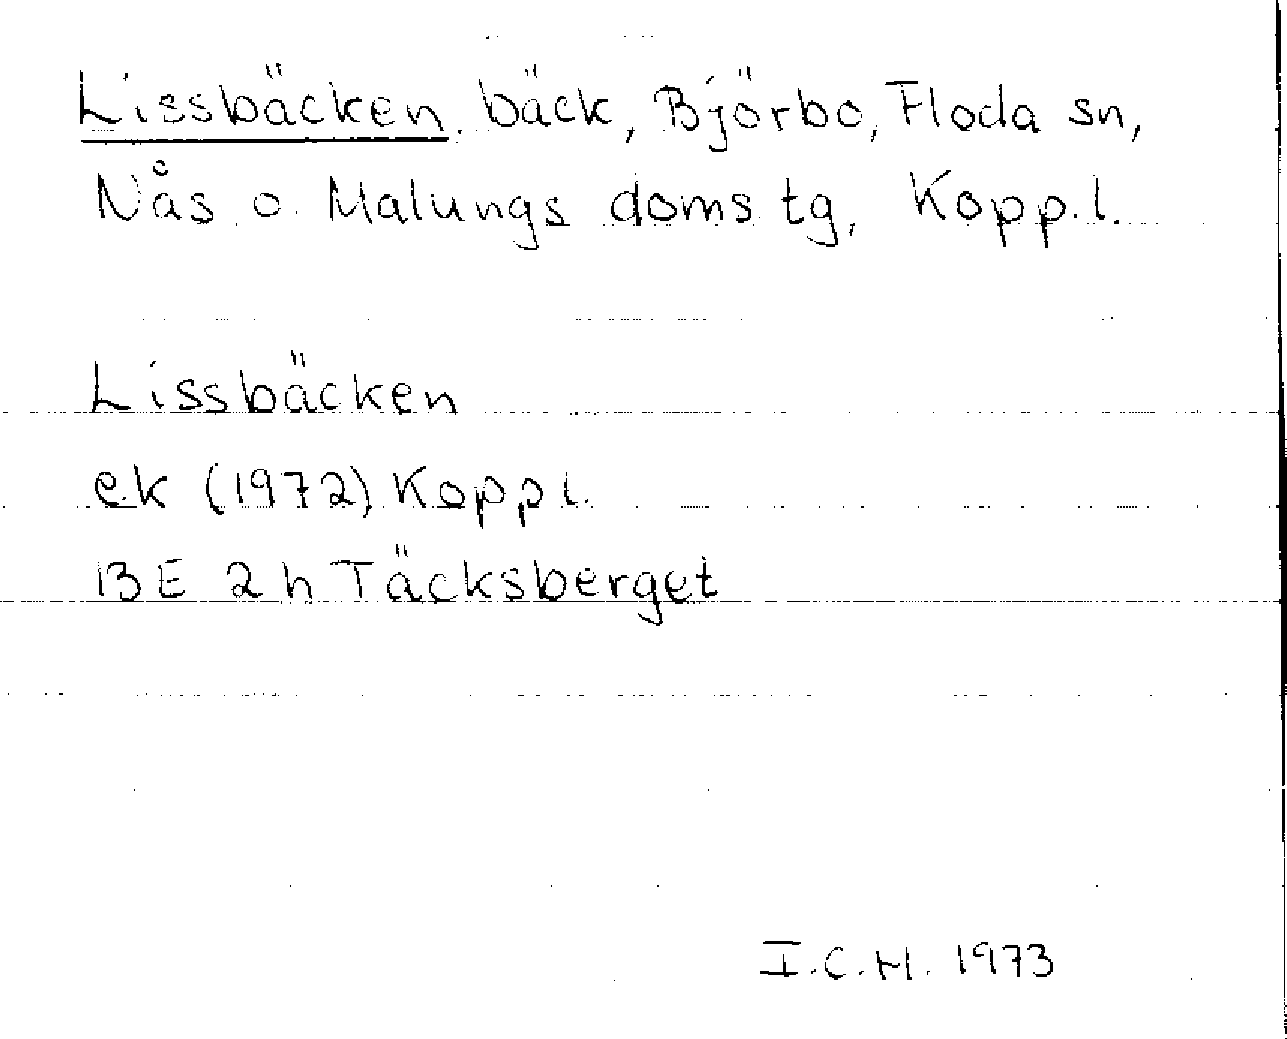 Lissbäcken, bäck, Björbo, Floda sn,
Nås o. Malungs doms tg, Kopp.l.
Lissbäcken
ek (1972) Kopp l.
13 E 2 h Täcksberget
I.C.H. 1973